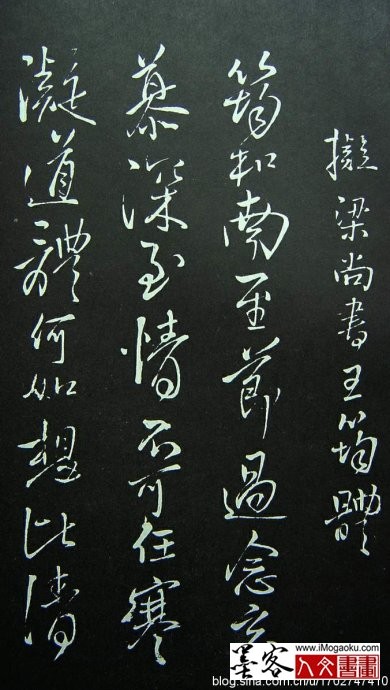 擬梁尚書王筠體
筠和南至節過念哀
慕深至情不可任寒
凝道體何如想比清
www.iMogaoku.com
墨客人文書畫
blog.sina.com.cn/u/1702747410